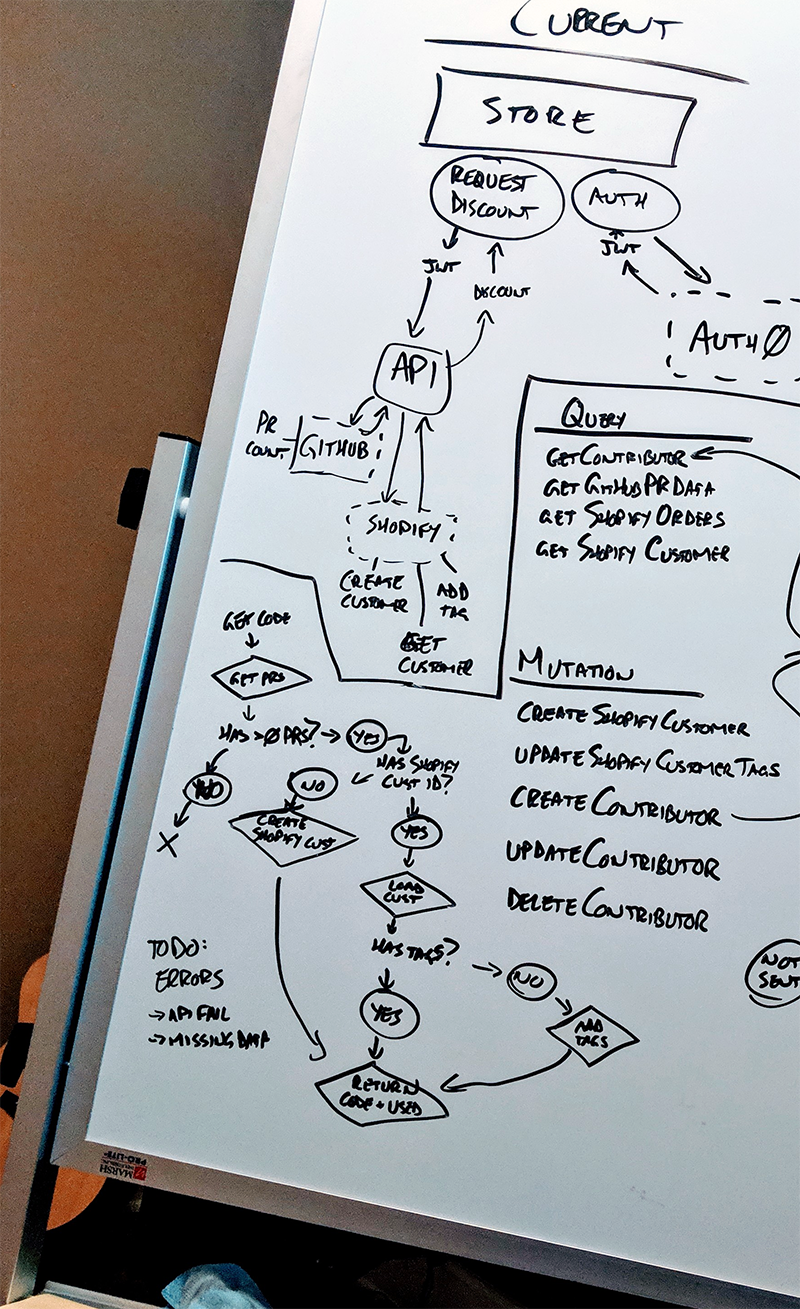 CURRENT
STORE
REQUEST
DISCOUNT
AUTH
JWT
DISCOUNT
JWT
AUTH0
API
PR
COUNT
GITHUB
SHOPIFY
CREATE
CUSTOMER
ADD
TAG
GET
CUSTOMER
QUERY
GETCONTRIBUTOR
GET GITHUBPRDATA
GET SHOPIFY ORDERS
GET SHOPIFY CUSTOMER
MUTATION
CREATE SHOPIFY CUSTOMER
UPDATE SHOPIFY CUSTOMER TAGS
CREATE CONTRIBUTOR
UPDATE CONTRIBUTOR
DELETE CONTRIBUTOR
NOT
SENT
GET CODE
GET PRS
HAS >0 PRS?
YES
NO
X
HAS SHOPIFY
CUST ID?
NO
CREATE
SHOPIFY CUST
YES
LOAD
CUST
HAS TAGS?
NO
YES
ADD
TAGS
RETURN
CODE + USED
TODO:
ERRORS
→ API FAIL
→ MISSING DATA
MARSH
PRO-LITE